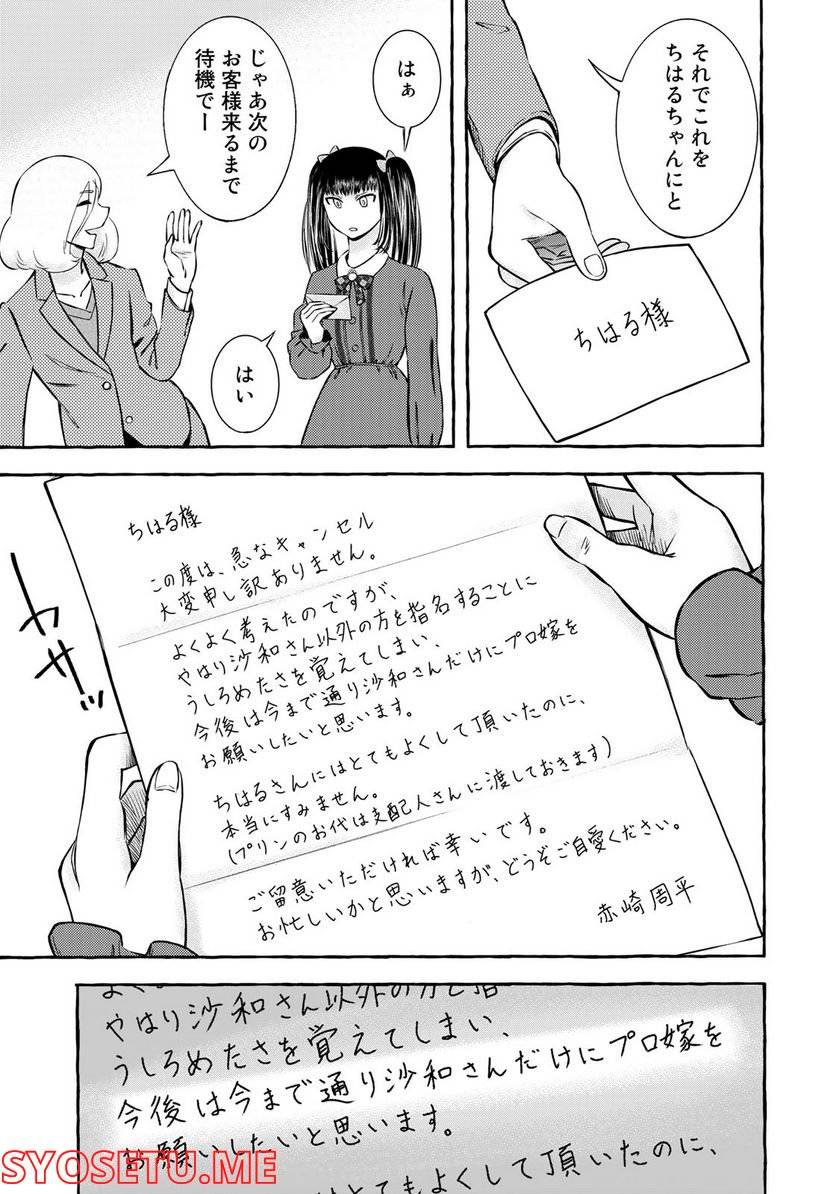 それでこれを
ちはるちゃんにと
ちはる様
はぁ
じゃあ次の
お客様来るまで
待機でー
はい
ちはる様
この度は、急なキャンセル
大変申し訳ありません。
よくよく考えたのですが、
やはり沙和さん以外の方を指名することに
うしろめたさを覚えてしまい、
今後は今まで通り沙和さんだけにプロ嫁を
お願いしたいと思います。
ちはるさんにはとてもよくして頂いたのに、
本当にすみません。
(プリンのお代は支配人さんに渡しておきます)
ご留意いただければ幸いです。
お忙しいかと思いますが、どうぞご自愛ください。
赤崎周平
カサッ
やはり沙和さん以外の方を指
うしろめたさを覚えてしまい、
今後は今まで通り沙和さんだけにプロ嫁を
お願いしたいと思います。
はとてもよくして頂いたのに、
SYOSETU.ME